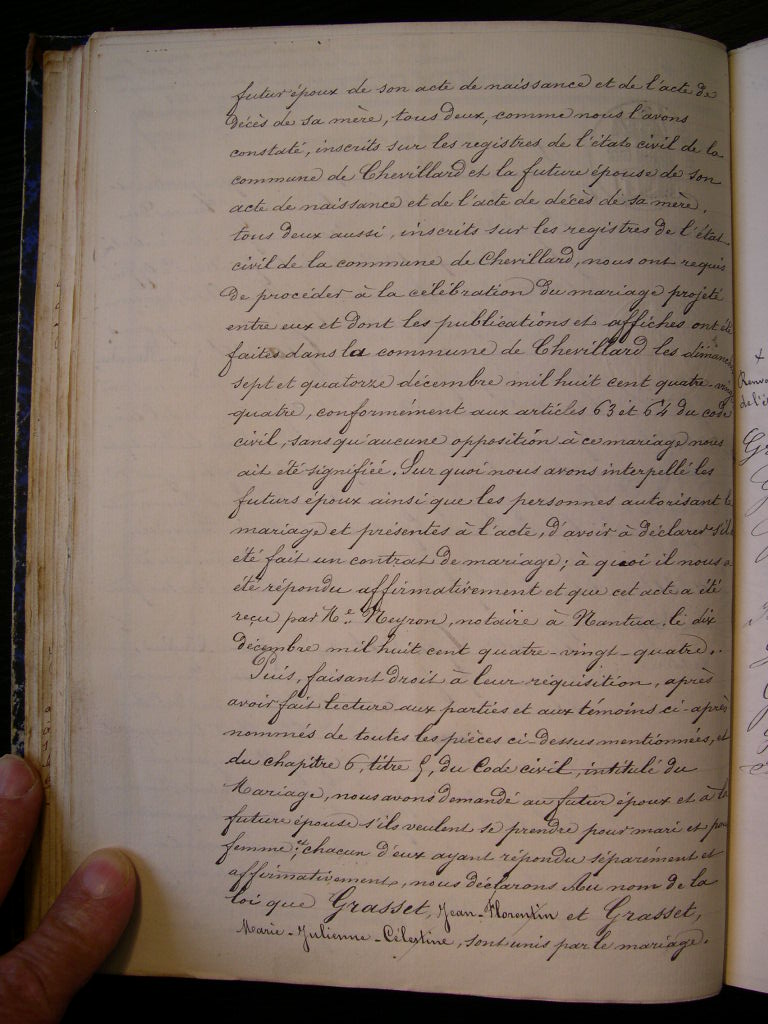 futur époux de son acte de naissance et de l'acte de
décès de sa mère, tous deux, comme nous l'avons
constaté, inscrits sur les registres de l'état civil de la
commune de Chevillard et la future épouse de son
acte de naissance et de l'acte de décès de sa mère,
tous deux aussi, inscrits sur les registres de l'état
civil de la commune de Chevillard, nous ont requis
de procéder à la célébration du mariage projeté
entre eux et dont les publications et affiches ont été
faites dans la commune de Chevillard les dimanches
sept et quatorze décembre mil huit cent quatre-vingt
quatre, conformément aux articles 63 et 64 du code
civil, sans qu'aucune opposition à ce mariage nous
ait été signifiée. Sur quoi nous avons interpellé les
futurs époux ainsi que les personnes autorisant le
mariage et présentes à l'acte, d'avoir à déclarer s'il a
été fait un contrat de mariage; à quoi il nous a
été répondu affirmativement et que cet acte a été
reçu par Me. Neyron, notaire à Nantua, le dix
décembre mil huit cent quatre-vingt-quatre.
Puis, faisant droit à leur réquisition, après
avoir fait lecture aux parties et aux témoins ci-après
nommés de toutes les pièces ci-dessus mentionnées, et
du chapitre 6, titre 5, du Code civil, intitulé du
Mariage, nous avons demandé au futur époux et à la
future épouse s'ils veulent se prendre pour mari et pour
femme; et chacun d'eux ayant répondu séparément et
affirmativement, nous déclarons Au nom de la
loi que Grasset, Jean-Florentin et Grasset,
Marie-Julienne-Célestine, sont unis par le mariage.
+
de l'é